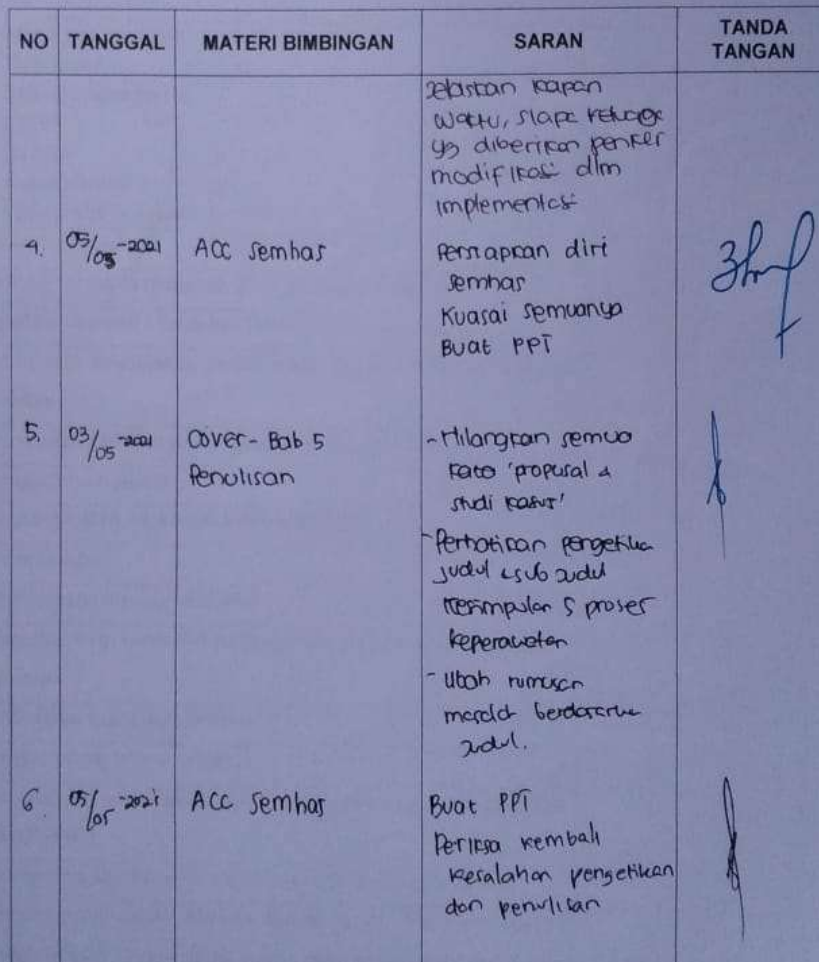 NO TANGGAL MATERI BIMBINGAN SARAN TANDA TANGAN
Jelaskan kapan
waktu, siapa keluarga
yg diberikan penker
modifikasi dlm
implementasi
4. 05/05-2021 ACC Semhas Persiapkan diri
semhas
Kuasai semuanya
Buat PPT
5. 03/05-2021 Cover - Bab 5 - Hilangkan semua
Penulisan kata 'proposal &
studi kasus'
- Perhatikan pengetikan
judul & sub judul
kesimpulan 5 proses
keperawatan
- Ubah rumusan
masalah berdasarkan
judul.
6. 05/05-2021 ACC Semhas Buat PPT
Periksa kembali
kesalahan pengetikan
dan penulisan